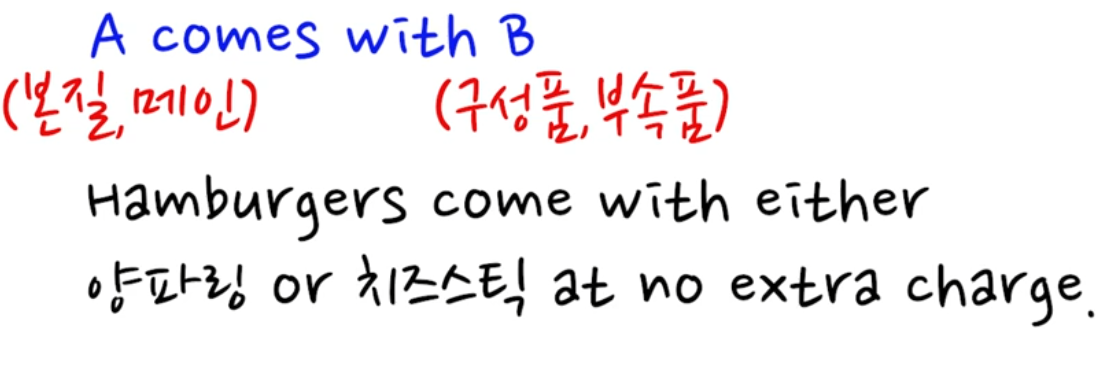 A comes with B
(본질, 메인) (구성품, 부속품)
Hamburgers come with either
양파링 or 치즈스틱 at no extra charge.